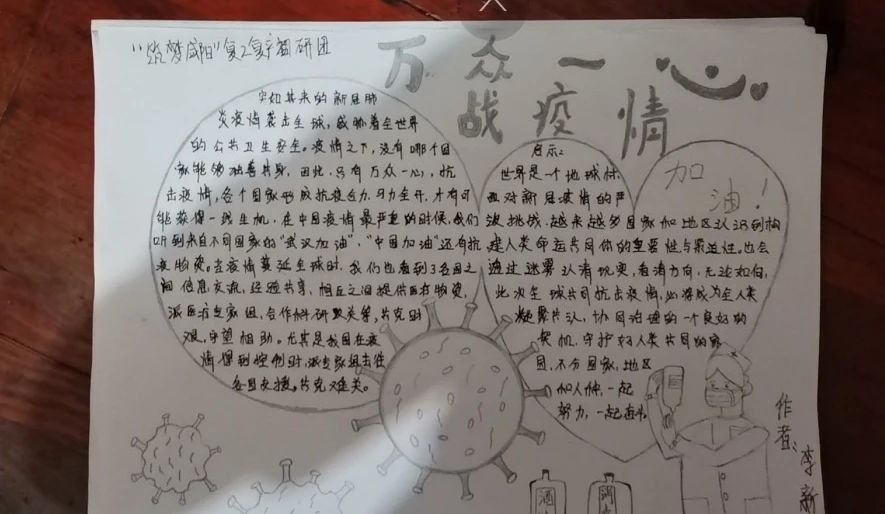 "筑梦咸阳"复之复宇调研团
万众一心
战疫情
突如其来的新冠肺
炎疫情袭击全球，威胁着全世界
的公共卫生安全。疫情之下，没有哪个国
家能够独善其身，因此，只有万众一心，抗
击疫情，各个国家形成抗疫合力，马力全开，才有可
能获得一线生机，在中国疫情最严重的时候，我们
听到来自不同国家的"武汉加油"，"中国加油"还有抗
疫物资。当疫情蔓延全球时，我们也看到了各国之
间信息交流，经验共享，相互之间提供医疗物资，
派医疗专家组，合作科研攻关等，共克时
艰，守望相助。尤其是我国在疫
情得到控制时，派专家组去往
各国支援。共克难关。
启示：
世界是一个地球村，
面对新冠疫情的严
峻挑战，越来越多国家和地区认识到构
建人类命运共同体的重要性与紧迫性。也会
透过迷雾认清现实，看清方向，无论如何，
此次全球共同抗击疫情，必将成为全人类
凝聚共识，协同治理的一个良好的
契机，守护好人类共同的家
园，不分国家，地区
和人种，一起
努力，一起奋斗
加
油！
酒
消
作者：李新